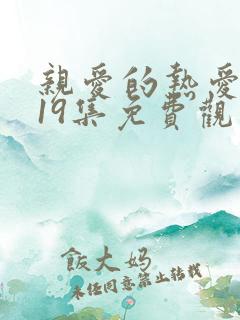 親愛的熱愛
19集免費觀
飯大妈
未任同意禁止转载